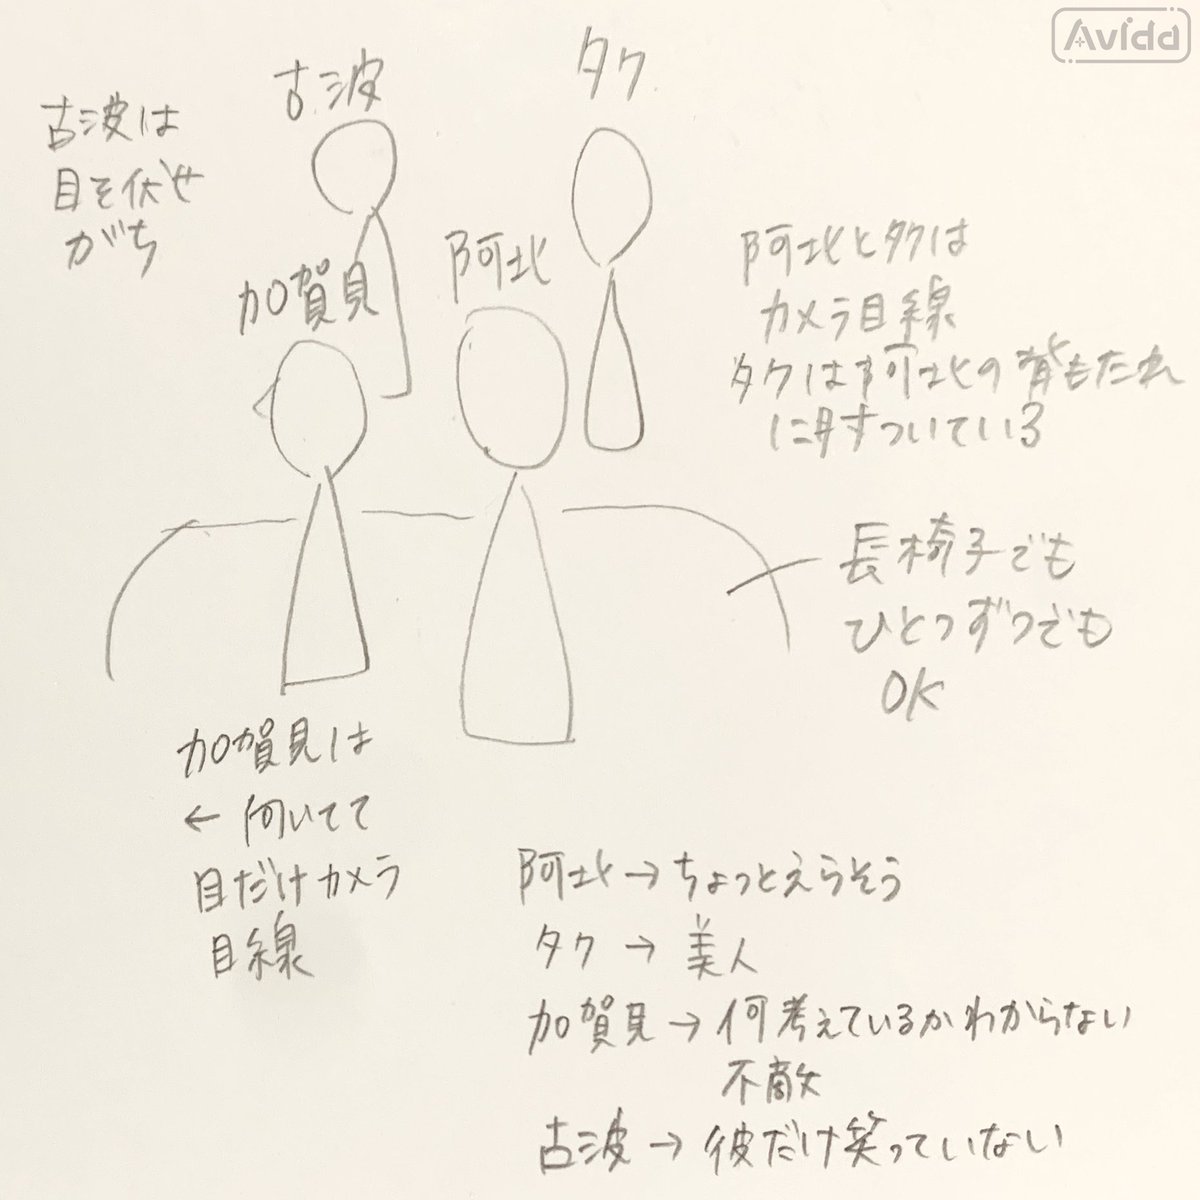 Avidd
古波
タク
古波は
目を伏せ
がち
加賀見
阿北
阿北とタクは
カメラ目線
タクは阿北の背もたれ
に肘ついている
長椅子でも
ひとつずつでも
OK
加賀見は
← 向いてて
目だけカメラ
目線
阿北→ちょっとえらそう
タク → 美人
加賀見→何考えているかわからない
不敵
古波→彼だけ笑っていない